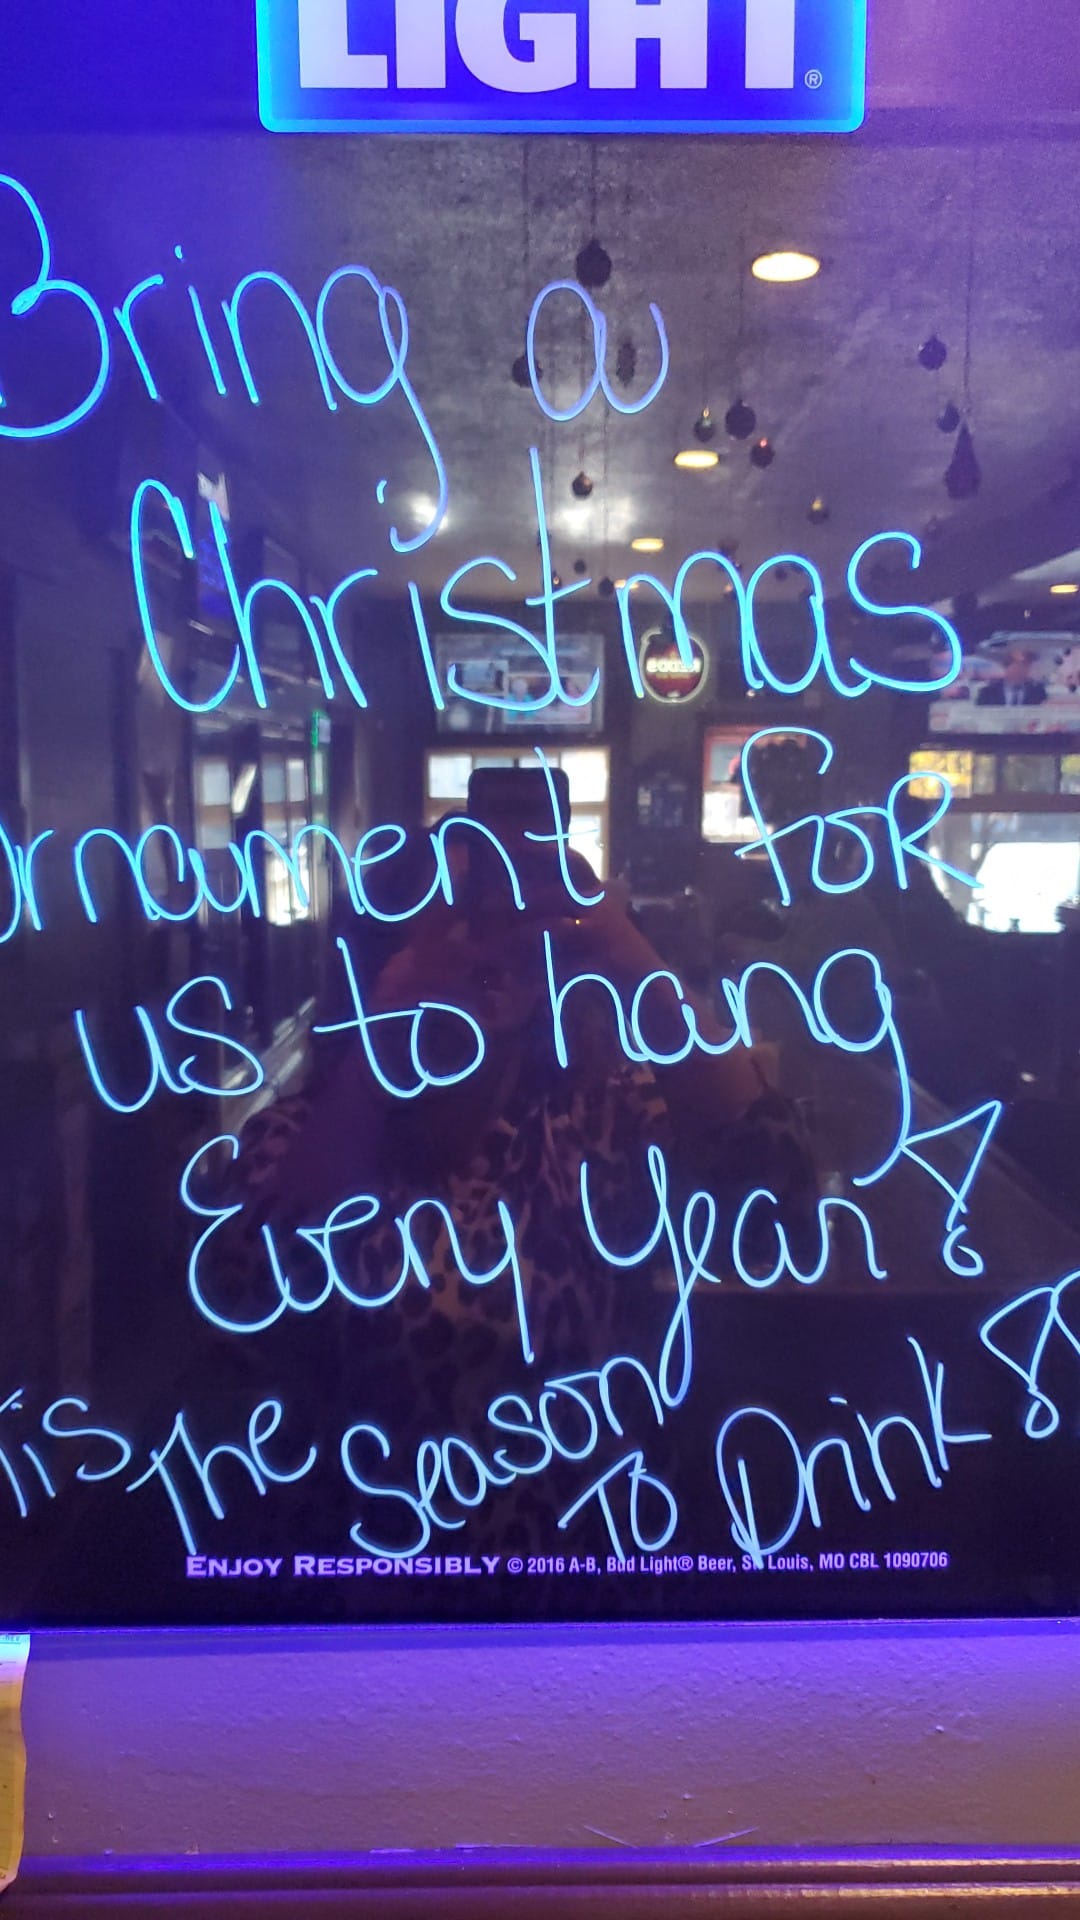 LIGHT®
Bring a
Christmas
Ornament foR
us to hang
Every Year!
Tis The Season
To Drink
ENJOY RESPONSIBLY © 2016 A-B, Bud Light® Beer, St. Louis, MO CBL 1090706